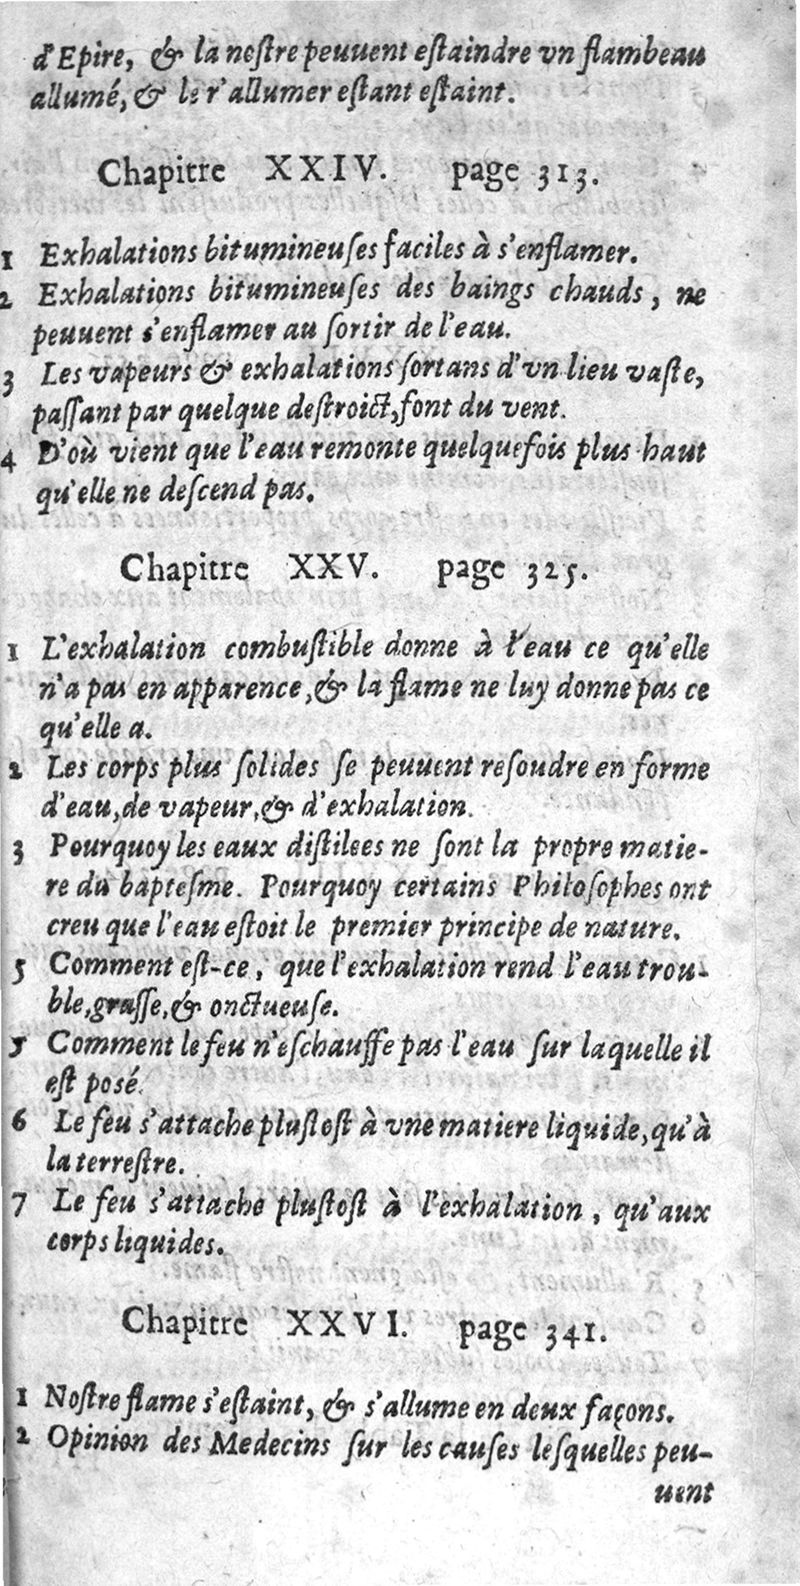 d'Epire, & la nostre peuuent estaindre vn flambeau
allumé, & le r'allumer estant estaint.
Chapitre XXIV. page 313.
1 Exhalations bitumineuses faciles à s'enflamer.
2 Exhalations bitumineuses des baings chauds, ne
peuuent s'enflamer au sortir de l'eau.
3 Les vapeurs & exhalations sortans d'vn lieu vaste,
passant par quelque destroict, font du vent.
4 D'où vient que l'eau remonte quelquefois plus haut
qu'elle ne descend pas.
Chapitre XXV. page 325.
1 L'exhalation combustible donne à l'eau ce qu'elle
n'a pas en apparence, & la flame ne luy donne pas ce
qu'elle a.
2 Les corps plus solides se peuuent resoudre en forme
d'eau, de vapeur, & d'exhalation.
3 Pourquoy les eaux distilees ne sont la propre matie-
re du baptesme. Pourquoy certains Philosophes ont
creu que l'eau estoit le premier principe de nature.
5 Comment est-ce, que l'exhalation rend l'eau trou-
ble, grasse, & onctueuse.
5 Comment le feu n'eschauffe pas l'eau sur laquelle il
est posé.
6 Le feu s'attache plustost à vne matiere liquide, qu'à
la terrestre.
7 Le feu s'attache plustost à l'exhalation, qu'aux
corps liquides.
Chapitre XXVI. page 341.
1 Nostre flame s'estaint, & s'allume en deux façons.
2 Opinion des Medecins sur les causes lesquelles peu-
uent